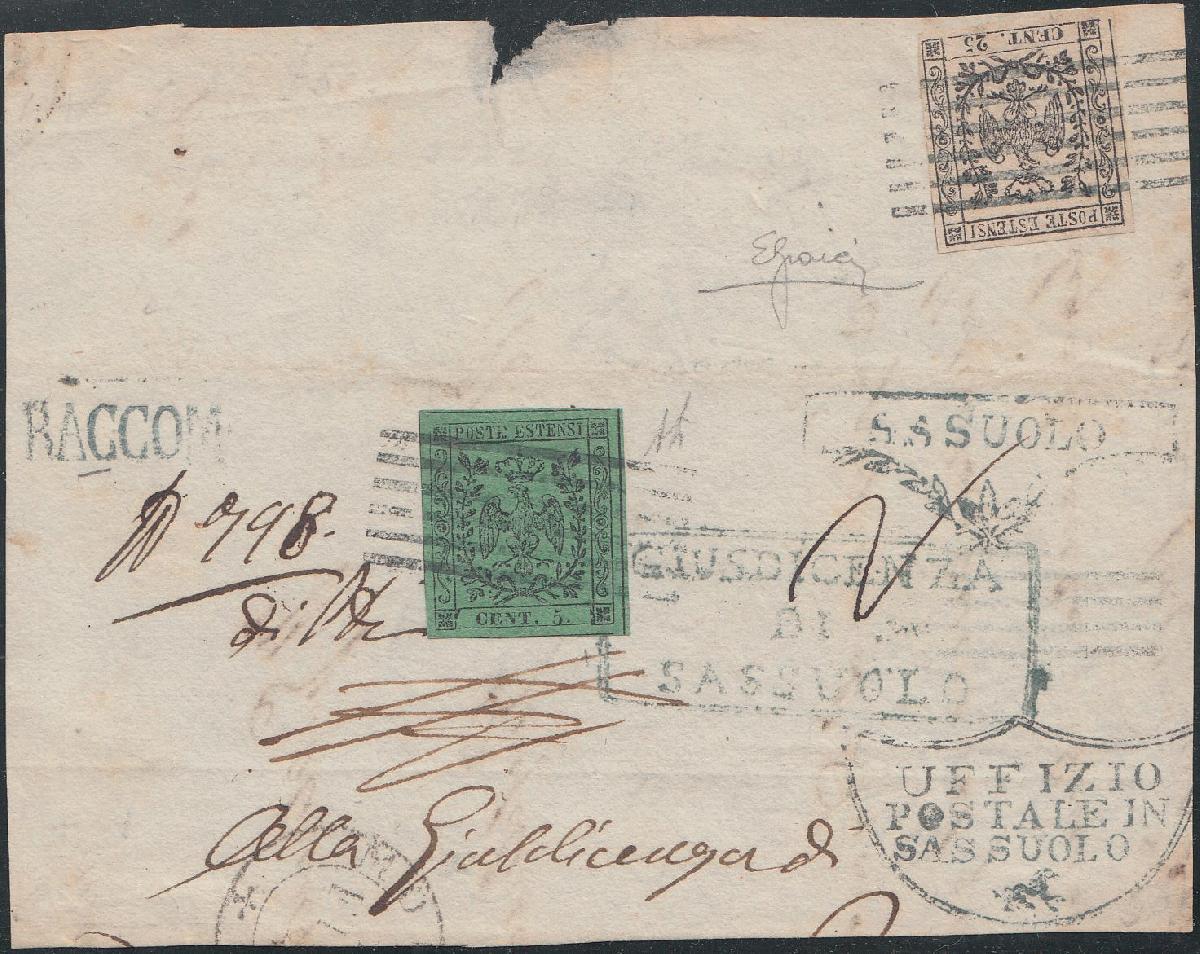 CENT. 25
POSTE ESTENSI
RACCOM
SASSUOLO
POSTE ESTENSI
CENT. 5.
N 798.
GIUSDICENZA
DI
SASSUOLO
UFFIZIO
POSTALE IN
SASSUOLO
Alla Giusdicenza di